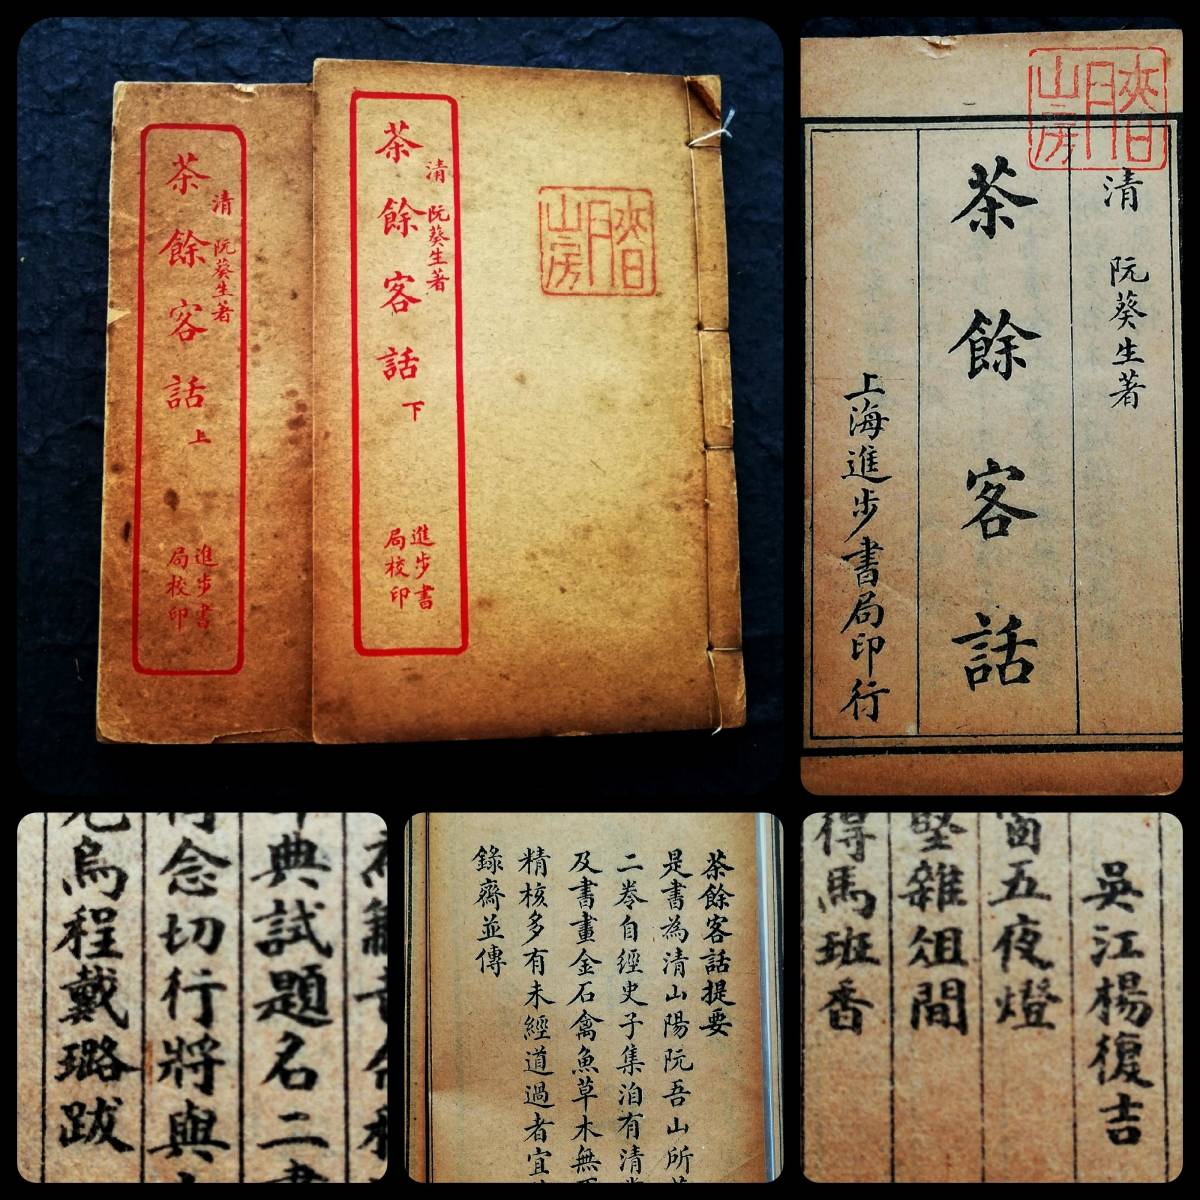 清 阮葵生著
茶餘客話 下
進步書
局校印
月
山房
清 阮葵生著
茶餘客話 上
進步書
局校印
月
山房
清 阮葵生著
茶餘客話
上海進步書局印行
典試題名二
念切行將與
烏程戴璐跋
茶餘客話提要
是書為清山陽阮吾山所
二卷自經史子集洎有清
及書畫金石禽魚草木無
精核多有未經道過者宜
錄齋並傳
吳江楊復吉
五夜燈
雜俎間
得馬班香